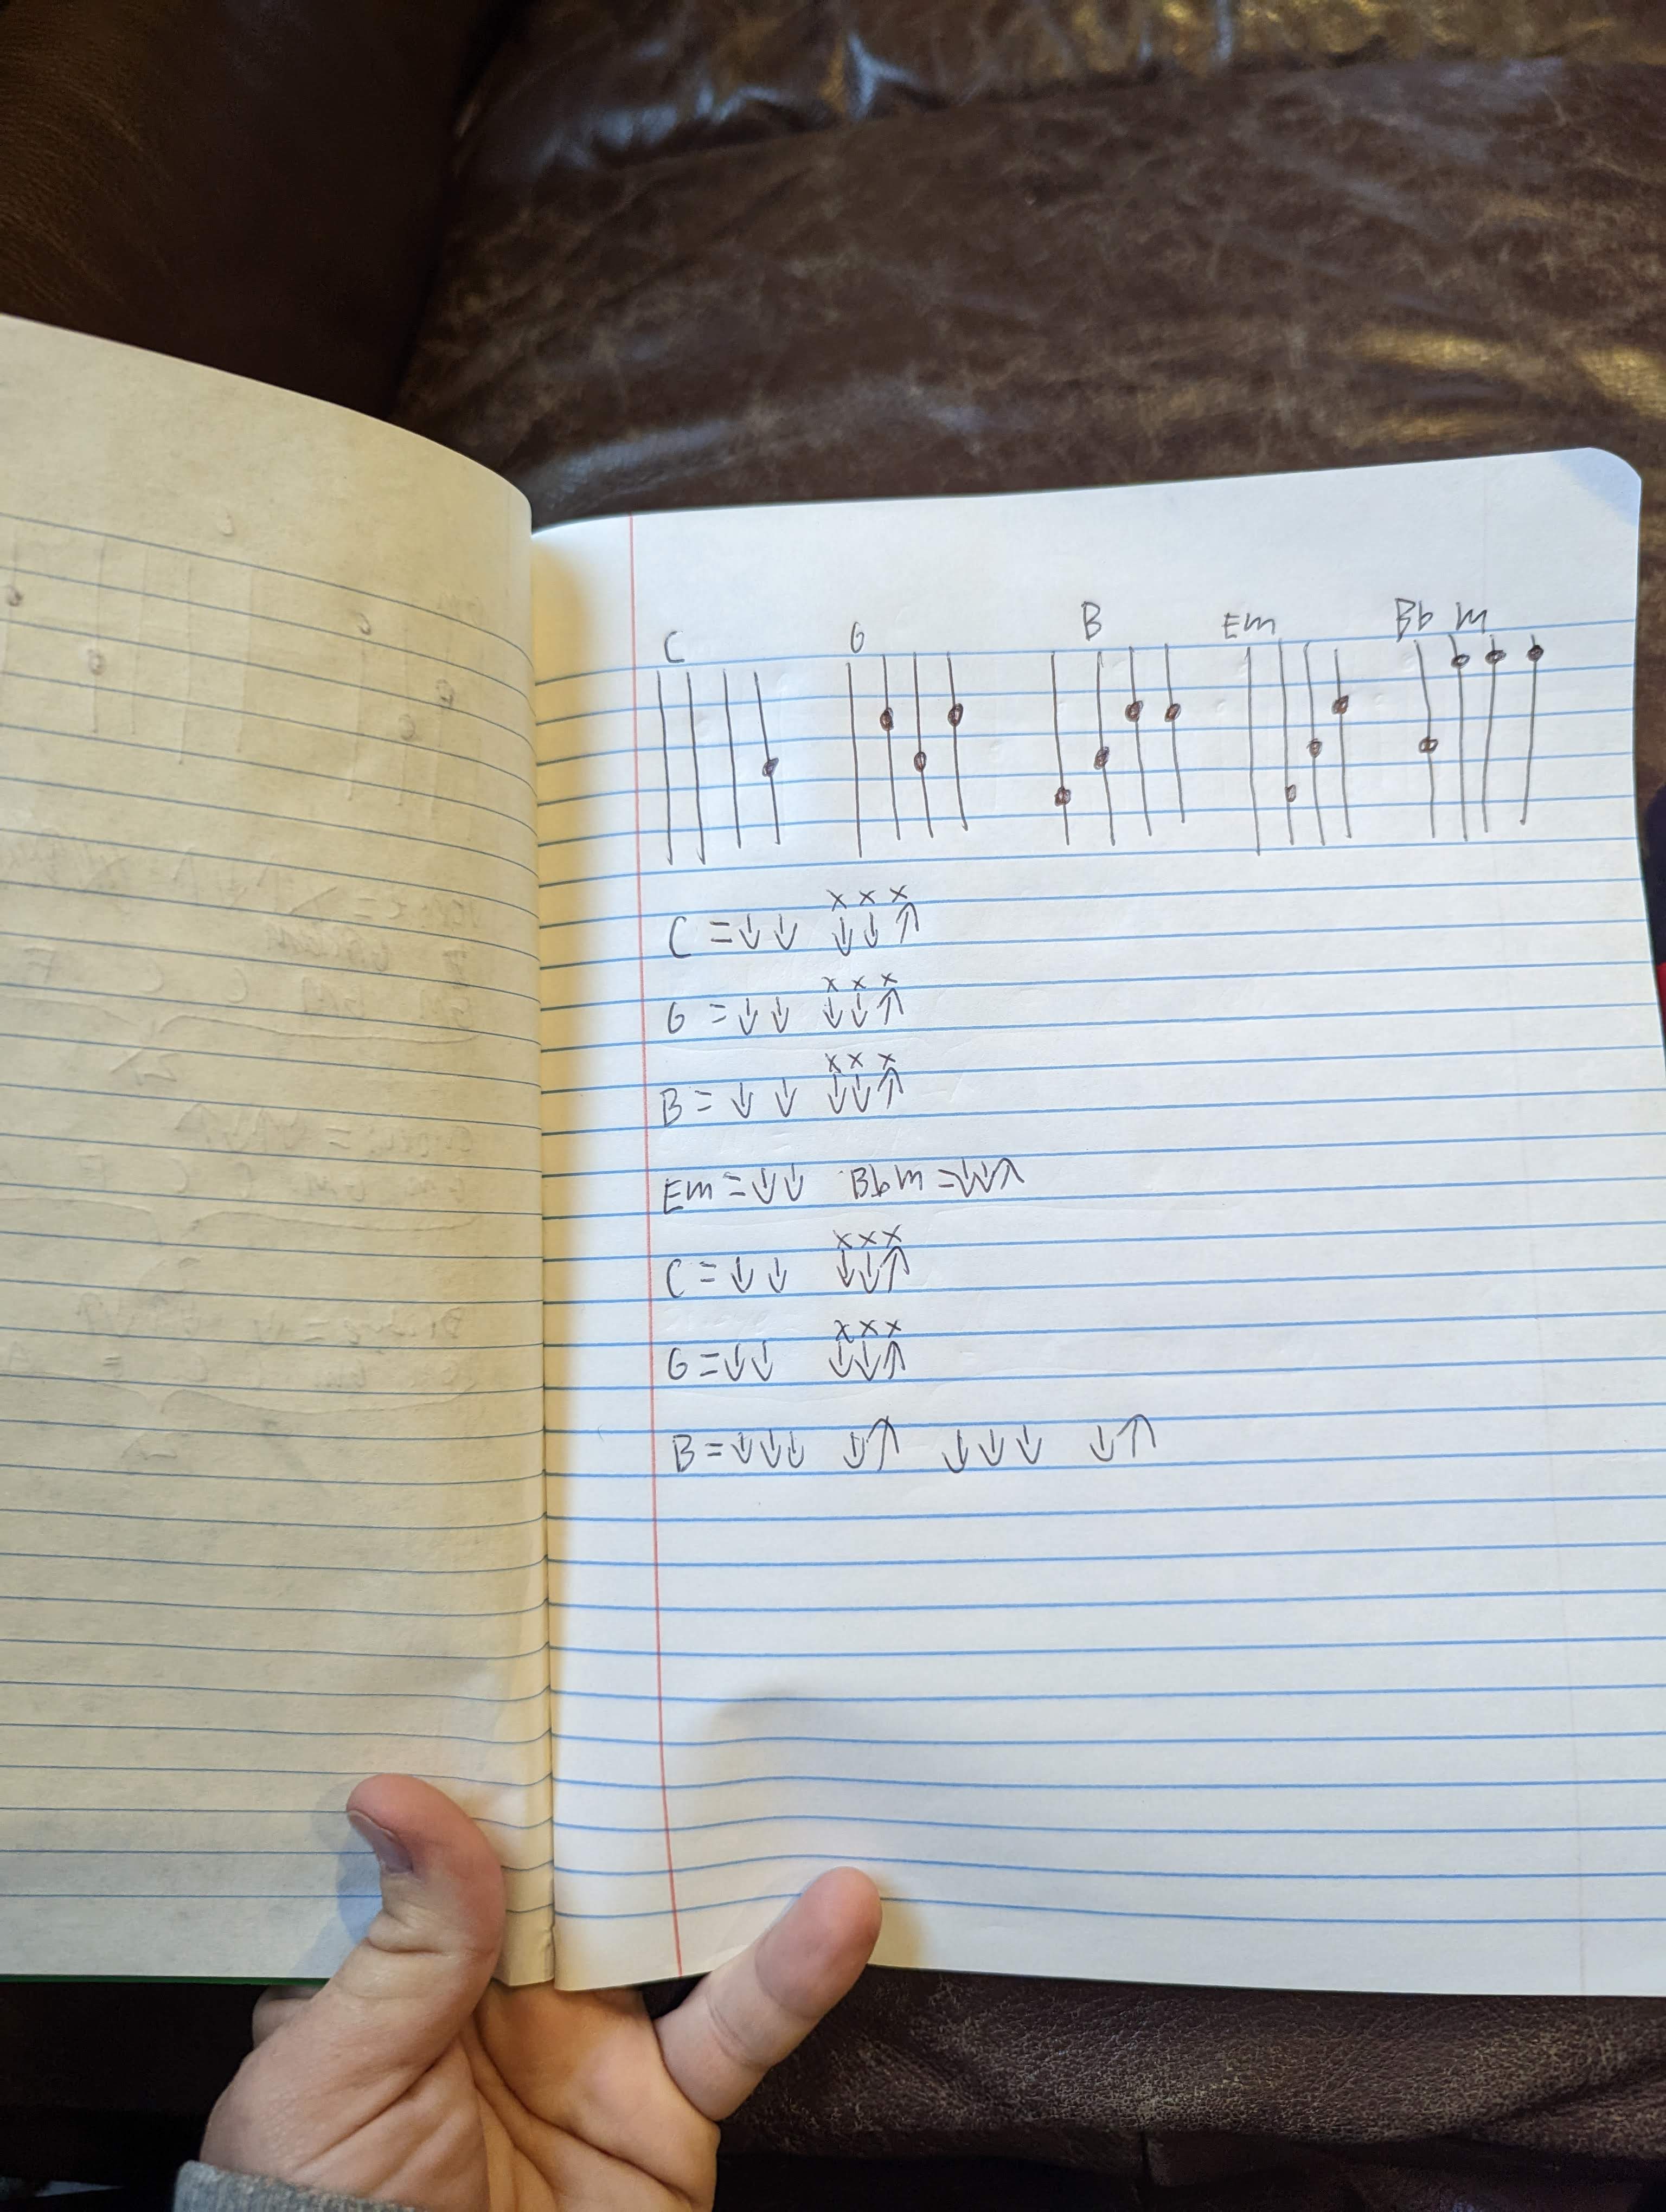 C G B Em Bb m
x x x
C = ↓ ↓ ↓ ↓ ↑
x x x
G = ↓ ↓ ↓ ↓ ↑
x x x
B = ↓ ↓ ↓ ↓ ↑
Em = ↓ ↓ Bbm = ↓ ↓ ↑
x x x
C = ↓ ↓ ↓ ↓ ↑
x x x
G = ↓ ↓ ↓ ↓ ↑
B = ↓ ↓ ↓ ↓ ↑ ↓ ↓ ↓ ↓ ↑